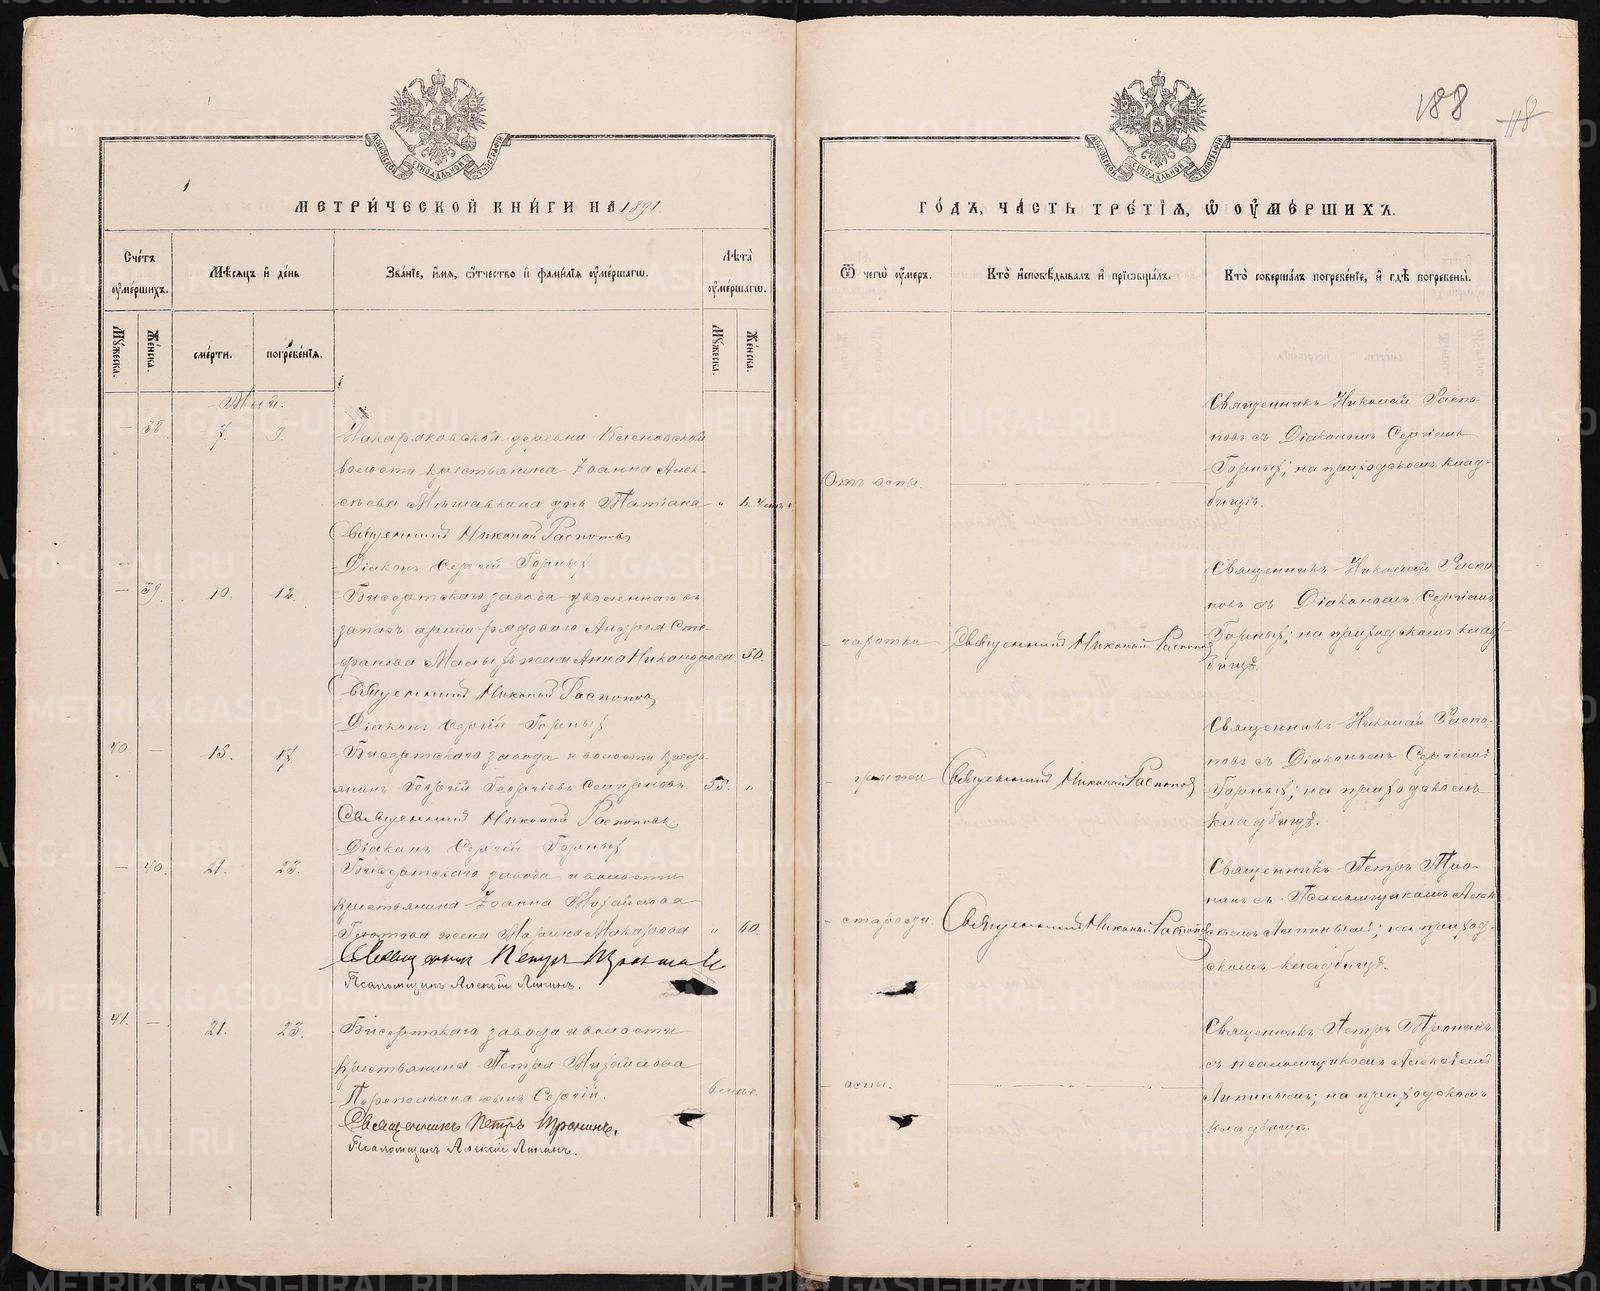 188
118
МЕТРИ́ЧЕСКОЙ КНИ́ГИ НА 1891
ГО́ДЪ, ЧА́СТЬ ТРЕ́ТІѦ, Ѡ ОУМЕ́РШИХЪ.
Сче́тъ оуме́ршихъ.
Мѣ́сяцъ и де́нь
Зва́ніе, и́мя, о́тчество и фами́лія оуме́ршагѡ.
Лѣ́та оуме́ршагѡ.
Мꙋжеска.
Же́нска.
сме́рти.
погребе́нія.
Мꙋжеска.
Же́нска.
Ѿ чегѡ̀ оу́меръ.
Кто̀ и҆сповѣ́дывалъ и҆ прїѡбща́лъ.
Кто̀ соверша́лъ погребе́ніе, и҆ гдѣ̀ погребены̀.
Май.
— 38 7. 9.
деревни Кленовской
волости крестьянина Іоанна Алек-
сѣева дочь Татіана "
Священникъ Николай Распоповъ
Діаконъ Сергій Горныхъ
Отъ оспы.
Священникъ Николай Распо-
повъ съ Діакономъ Сергіемъ
Горныхъ; на приходскомъ клад-
бищѣ.
— 39. 10. 12
Бисертскаго завода уволеннаго въ
запасъ арміи рядового Андрея Сте-
фанова Малыхъ жена Анна Никандрова. 50.
Священникъ Николай Распоповъ
Діаконъ Сергій Горныхъ
— чахотки
Священникъ Николай Распоповъ
Священникъ Николай Распо-
повъ съ Діакономъ Сергіемъ
Горныхъ; на приходскомъ клад-
бищѣ.
40 — 15. 17.
Бисертскаго завода и волости кресть-
янинъ Георгій Георгіевъ 55. "
Священникъ Николай Распоповъ
Діаконъ Сергій Горныхъ
Священникъ Николай Распоповъ
Священникъ Николай Распо-
повъ съ Діакономъ Сергіемъ
Горныхъ; на приходскомъ
кладбищѣ.
— 40. 21. 23.
Бисертскаго завода и волости
крестьянина Іоанна Михайлова
жена Марина Макарова " 60.
Священникъ Петръ Пронинъ
Псаломщикъ Алексій Липинъ.
— старости
Священникъ Николай Распоповъ
Священникъ Петръ Про-
нинъ съ Псаломщикомъ Алек-
сѣемъ Липинымъ; на приход-
скомъ кладбищѣ.
41. — 21. 23.
Бисертскаго завода и волости
крестьянина Петра Михайлова
сынъ Сергій.
Священникъ Петръ Пронинъ.
Псаломщикъ Алексій Липинъ.
— оспы.
Священникъ Петръ Пронинъ
съ псаломщикомъ Алексѣемъ
Липинымъ; на приходскомъ
кладбищѣ.
METRIKI.GASO-URAL.RU